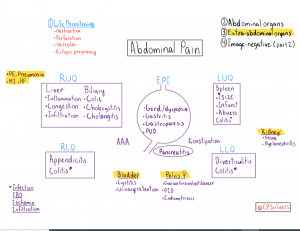 ① Life threatening
- Obstruction
- Perforation
- Vascular
- Ectopic pregnancy
Abdominal Pain
① Abdominal organs
③ Extra-abdominal organs
④ Image-negative (part 2)
• PE, Pneumonia
• MI, HF
RUQ
Liver
• Inflammation
• Congestion
• Infiltration
Biliary
• Colic
• Cholecystitis
• Cholangitis
EPI
• Gerd/dyspepsia
• Gastritis
• Gastroparesis
• PUD
Pancreatitis
LUQ
Spleen
• Size
• Infarct
• Abscess
Colitis*
AAA
Constipation
RLQ
Appendicitis
Colitis*
LLQ
Diverticulitis
Colitis*
Kidney
• Stone
• Pyelonephritis
Bladder
• Cystitis
• Urinary retention
Pelvis ♀
• PID
• Endometriosis
* Infection
IBD
Ischemia
Infiltration
@CPSolvers